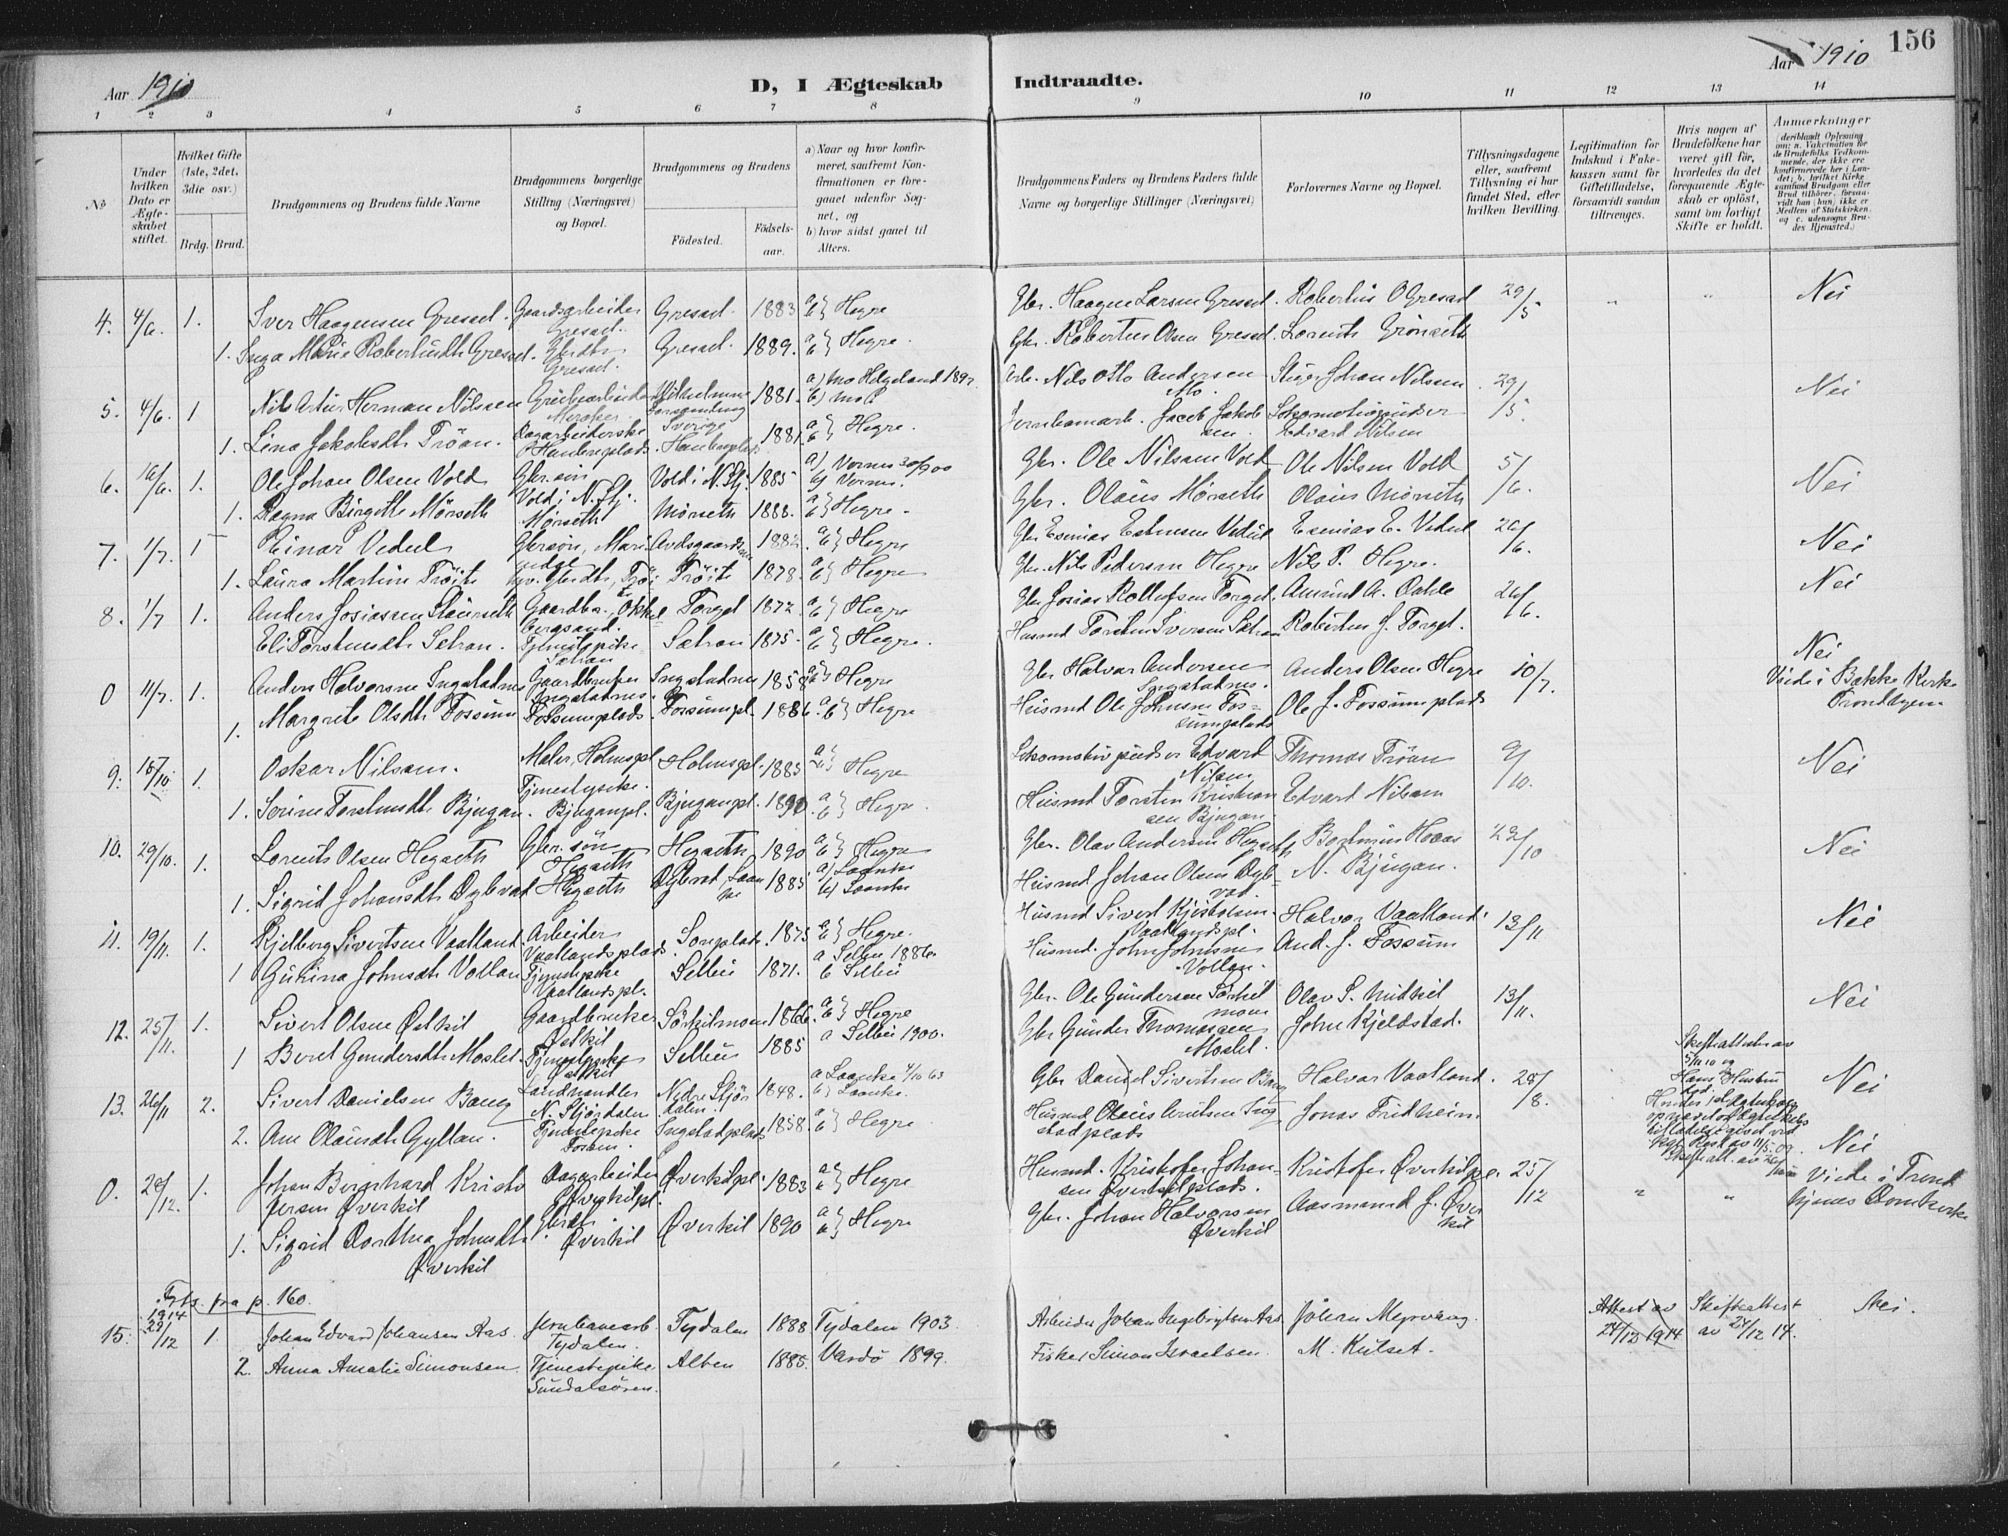 156
Aar 1910
D, I Ægteskab Indtraadte.
Aar 1910
1 2 3 4 5 6 7 8 9 10 11 12 13 14
№
Under hvilken Dato er Ægteskabet stiftet.
Hvilket Gifte (1ste, 2det, 3die osv.)
Brdg. Brud.
Brudgommens og Brudens fulde Navne
Brudgommens borgerlige Stilling (Næringsvei) og Bopæl.
Brudgommens og Brudens
Födested.
Födsels-aar.
a) Naar og hvor konfirmeret, saafremt Konfirmationen er foregaaet udenfor Sognet, og
b) hvor sidst gaaet til Alters.
Brudgommens Faders og Brudens Faders fulde Navne og borgerlige Stillinger (Næringsvei)
Forlovernes Navne og Bopæl.
Tillysningsdagene eller, saafremt Tillysning ei har fundet Sted, efter hvilken Bevilling.
Legitimation for Indskud i Enkekassen samt for Giftetilladelse, forsaavidt saadan tiltrænges.
Hvis nogen af Brudefolkene har været gift för, hvorledes da det foregaaende Ægteskab er oplöst, samt om lovligt Skifte er holdt.
Anmærkninger
4. 4/6. 1. Iver Haagensen Gresad. Gaardsarbeider Gresad. Gresad. 1883 a b } Hegre Gbr. Haagen Larsen Gresad. Robertus O Gresad 29/5 " " Nei
1. Inga Marie Robertusdt. Gresad. Gbrdtr. Gresad. Gresad. 1889. a b } Hegre. Gbr. Robertus Olsen Gresad. Lorents Grönseth
5. 4/6. 1 Nils Artur Herman Nilssen Grubearbeider Meraker. Sverige 1881. a) Mo Helgeland 1897 b) Mo Arb. Nils Otto Andersen Mo. Stiger Johan Nilsen. 29/5 Nei
1. Lina Jakobsdt. Tröan. 1881. a b } Hegre. Jernbanearb. Jacob Jakobsen. Lokomotivpudser Edvard Nilsen
6. 16/6. 1. Ole Johan Olsen Vold Gbr. sön Vold i N. Stj. Vold i N. Stj. 1885 a) Vernes 30/9 00 b) Vernes. Gbr. Ole Nilssen Vold Ole Nilsen Vold 5/6. Nei
1. Ragna Birgitte Mörseth Mörseth Mörseth 1888. a b } Hegre. Gbr. Olaus Mörseth Olaus Mörseth
7. 1/7. 1 Einar Vedul Gbrsön, 1882. a b } Hegre Gbr. Esenias Estensen Vedul Esenias E. Vedul 26/6. Nei
1. Laura Martine Tröite Tröite 1878. a b } Hegre Gbr. Nils Pedersen Hegre Nils P. Hegre. Nei
8. 1/7 1. Anders Josiassen Gaardbr. Torget 1872 a b } Hegre Gbr. Josias Rollufsen Torget. Amund A. Dahle 26/6.
Eli Torstensdt. Sætran. Tjenestepike Sætran Sætran 1875. a b } Hegre. Husmd Torsten Iversen Sætran Robertus J. Torget.
0 11/7. 1. Anders Halvorsen Ingstadnes Gaardbruker Ingstadnes. Ingstadnes 1858 a b } Hegre Gbr. Halvor Andersen Ingstadnes. Anders Olsen Hegre 10/7. Nei Viede i Bakke Kirke Trondhjem.
1. Margrete Olsdt. Fossum Fossumplads. Fossumpl. 1886. a b } Hegre Husmd Ole Johnsen Fossumplads Ole J. Fossumplads
9. 16/10. 1. Oskar Nilsen. Maler, Holmspl. Holmspl. 1885 a b } Hegre Lokomotivpudser Edvard Nilsen Thomas Tröan 9/10. Nei
1. Serine Torstensdt. Bjugan. Tjenestepike. Bjuganpl. Bjuganpl. 1890. a b } Hegre. Husmd Torsten Kristiansen Bjugan. Edvard Nilsen
10. 29/10. 1. Lorents Olsen Hegseth Gbr. sön Hegseth Hegseth 1890 a b } Hegre Gbr. Olav Andersen Hegseth Bortinus Haas 23/10 Nei
1. Sigrid Johansdt. Dybvad Hegseth Dybvad, Laanke 1885 a) Laanke b) Laanke Husmd Johan Olsen Dybvad N. Bjugan.
11. 19/11. 1. Kjelberg Sivertsen Vaatland. Arbeider Vaatlandsplads. Sonplads. 1875 a b } Hegre. Husmd Sivert Kjelbersen Vaatlandspl. Halvor Vaatland. 13/11 Nei
1 Gurina Johnsdt. Vollan Tjenestepike Vaatlandspl. Selbu 1871. a Selbu 1886. b Selbu Husmd. John Johnsen Vollan. And. J. Fossum
12. 25/11. 1. Sivert Olsen Østkil Gaardbruker Østkil Sörkilmoen 1866. a b } Hegre Gbr. Ole Gundersen Sörkilmoen Olav S. Midtkil 13/11. Nei
1 Beret Gundersdt. Moslet. Tjenestepike Østkil Selbu 1885 a Selbu 1900. Gbr Gunder Thomassen Moslet. John Kjeldstad.
13. 26/11 2. Sivert Danielsen Bang Landhandler N. Stjördalen Nedre Stjördalen. 1848. a Laanke 4/10 63 b) Laanke. Gbr Daniel Sivertsen Bang Halvor Vaatland. 28/8. Skifteattester av Nei
2. Ane Olausdt. Gyllan. Tjenestepike Ingstadplads 1858. a b } Hegre Jonas Fridheim Nei
0. 28/12. 1. Johan Bernhard Kristofersen Øverkil Dagarbeider Øverkilpl. Øverkilpl. 1883 a b } Hegre Husmd. Kristofer Johansen Øverkilplads. Kristofer Øverkilpl. 25/12 " " Viede i Trondhjems Domkirke
1. Sigrid Dorthea Johnsdt. Øverkil Gbrdt. Øverkil Øverkil 1890 a b } Hegre Gbr. Johan Halvorsen Øverkil Aasmund J. Øverkil
Fyts. fra p. 160.
15. 1914 29/12 1. Johan Edvard Johansen Aas. Jernbanearb. Tydalen. Tydalen 1888 Tydalen 1903. Arbeider Johan Ingebrigtsen Aas Johan Myrvang. Attest av 24/12 1914 Skifteattest av 24/12 14. Nei.
2. Anna Amalie Simonsen. Tjenestepike Sundalsören. Alten 1885. Vardö 1899. Fisker Simon Israelsen M. Kulset.